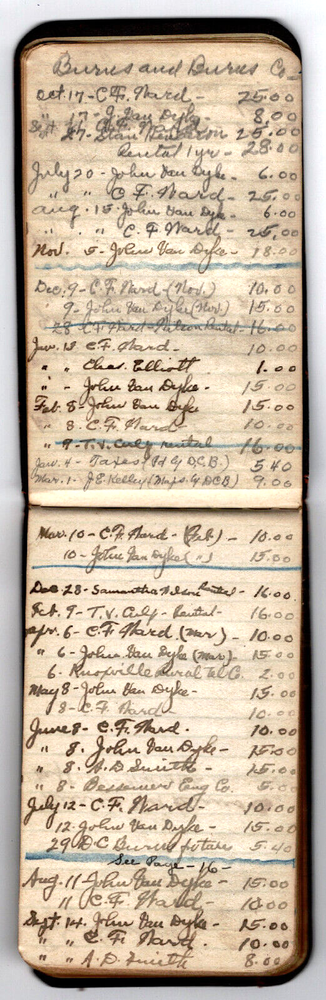 Burns and Burns Co -
Oct. 17 - C.F. Ward - 25.00
" 17 - J. Van Dyke 8.00
Sept 27 - Stan 25.00
Rental 1 yr - 28.00
July 20 - John Van Dyke - 6.00
" " C.F. Ward - 25.00
Aug. 15 John Van Dyke - 6.00
" " C.F. Ward - 25.00
Nov. 5 - John Van Dyke - 18.00
Dec. 9 - C.F. Ward - (Nov.) 10.00
" 9 - John Van Dyke (Nov.) 15.00
28 C.F. Ward - Rental - 16.00
Jan. 13 C.F. Ward - 10.00
" " Chas. Elliott 1.00
" - John Van Dyke - 15.00
Feb. 8 - John Van Dyke 15.00
" 8. C.F. Ward - 10.00
" 9 - T.V. Culp rental 16.00
Jan. 4 - Taxes (Pd by D.C.B.) 5.40
Mar. 1 - J.E. Kelley (Maps by DCB) 9.00
Mar. 10 - C.F. Ward - (Feb) - 10.00
10 - John Van Dyke ( " ) 15.00
Dec 28 - Samantha Nelson Rental - 16.00
Feb. 9 - T.V. Culp - Rental - 16.00
Apr. 6 - C.F. Ward (Mar) - 10.00
" 6 - John Van Dyke (Mar) 15.00
6. Knoxville Rural Tel Co. 2.00
May 8 - John Van Dyke - 15.00
8 - C.F. Ward 10.00
June 8 - C.F. Ward. 10.00
" 8. John Van Dyke - 15.00
" 8. A.D Smith - 15.00
" 8 - Bessemer Eng Co. 5.00
July 12 - C.F. Ward - 10.00
12 - John Van Dyke - 15.00
29 D C Burns 5.40
See Page - 16 -
Aug. 11 John Van Dyke - 15.00
" 11 C.F. Ward - 10.00
Sept. 14. John Van Dyke - 15.00
" " C.F. Ward. 10.00
" " A.D. Smith 8.00